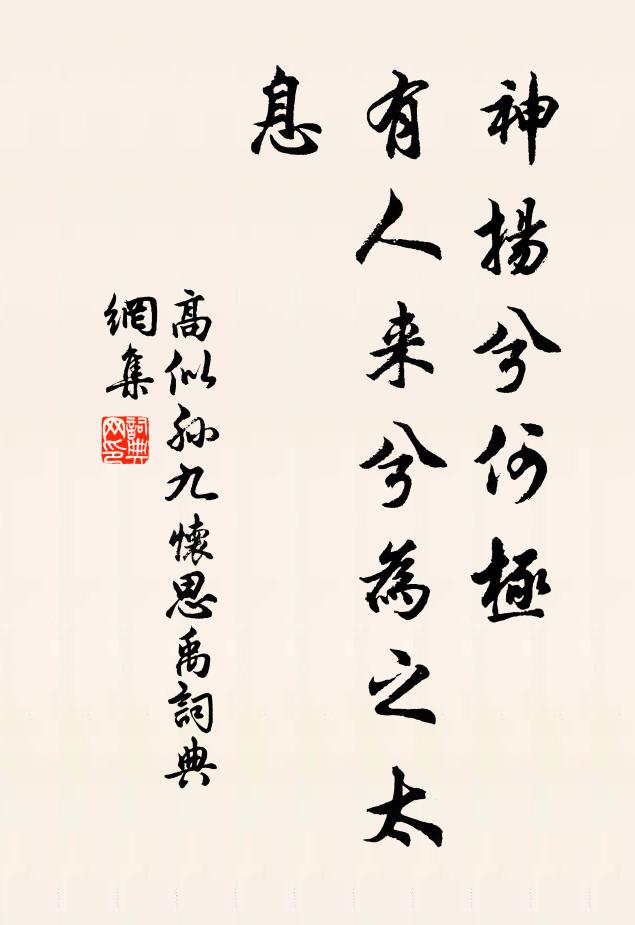 神揚兮何極
有人来兮為之太
息
高似孫九懷思禹詞典
網集
詞典
网印